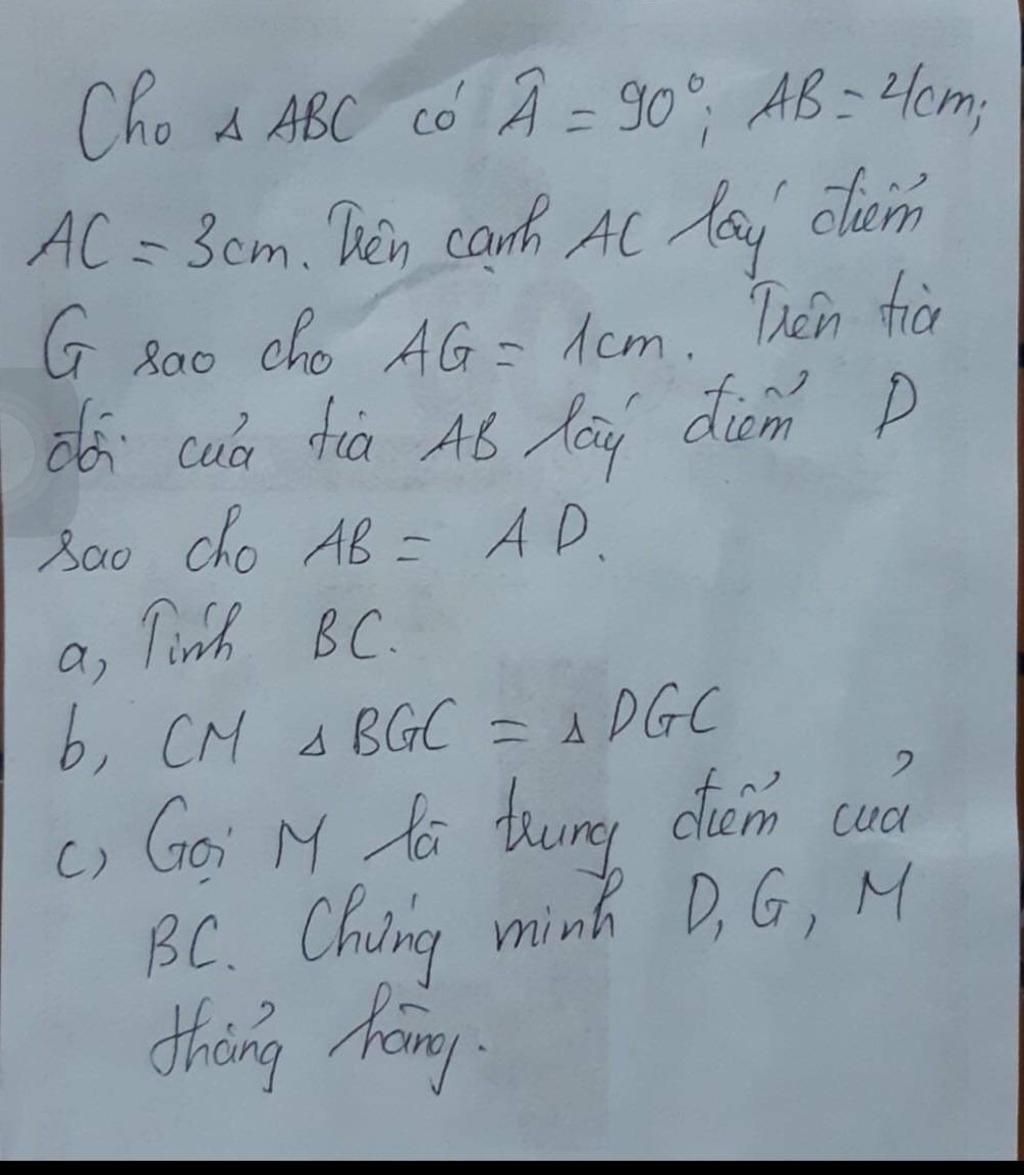 Cho Δ ABC có Â = 90°; AB = 4cm;
AC = 3cm. Trên cạnh AC lấy điểm
G sao cho AG = 1cm. Trên tia
đối của tia AB lấy điểm D
sao cho AB = AD.
a, Tính BC.
b, CM Δ BGC = Δ DGC
c, Gọi M là trung điểm của
BC. Chứng minh D, G, M
thẳng hàng.